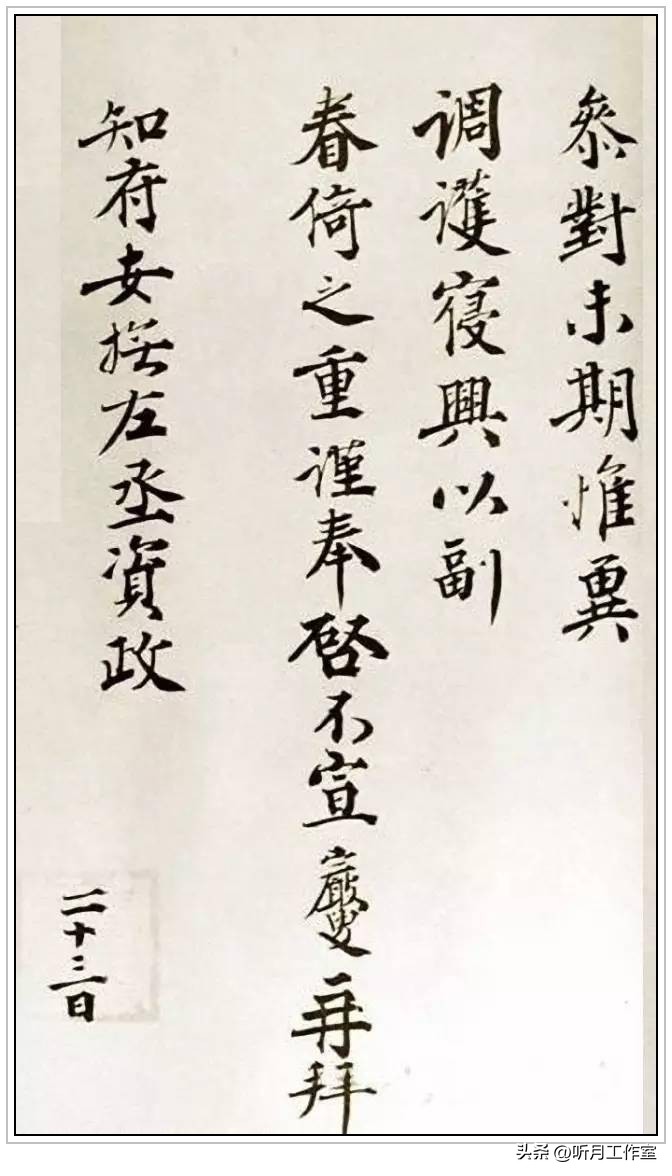 叅對未期惟冀
调護寢興以副
眷倚之重謹奉啓不宣巖叟再拜
知府安撫左丞資政
二十三日
头条 @听月工作室